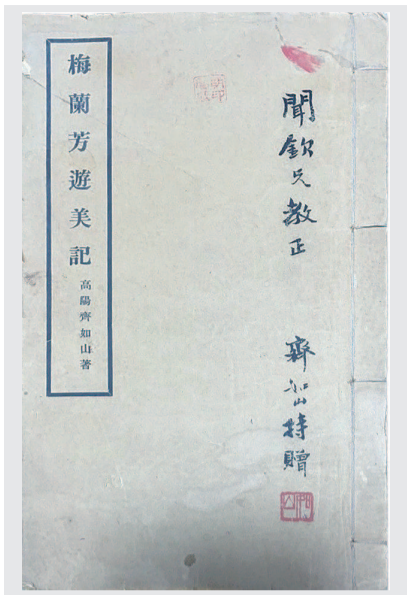 聞欽兄教正
齊如山特贈
梅蘭芳遊美記
高陽齊如山著